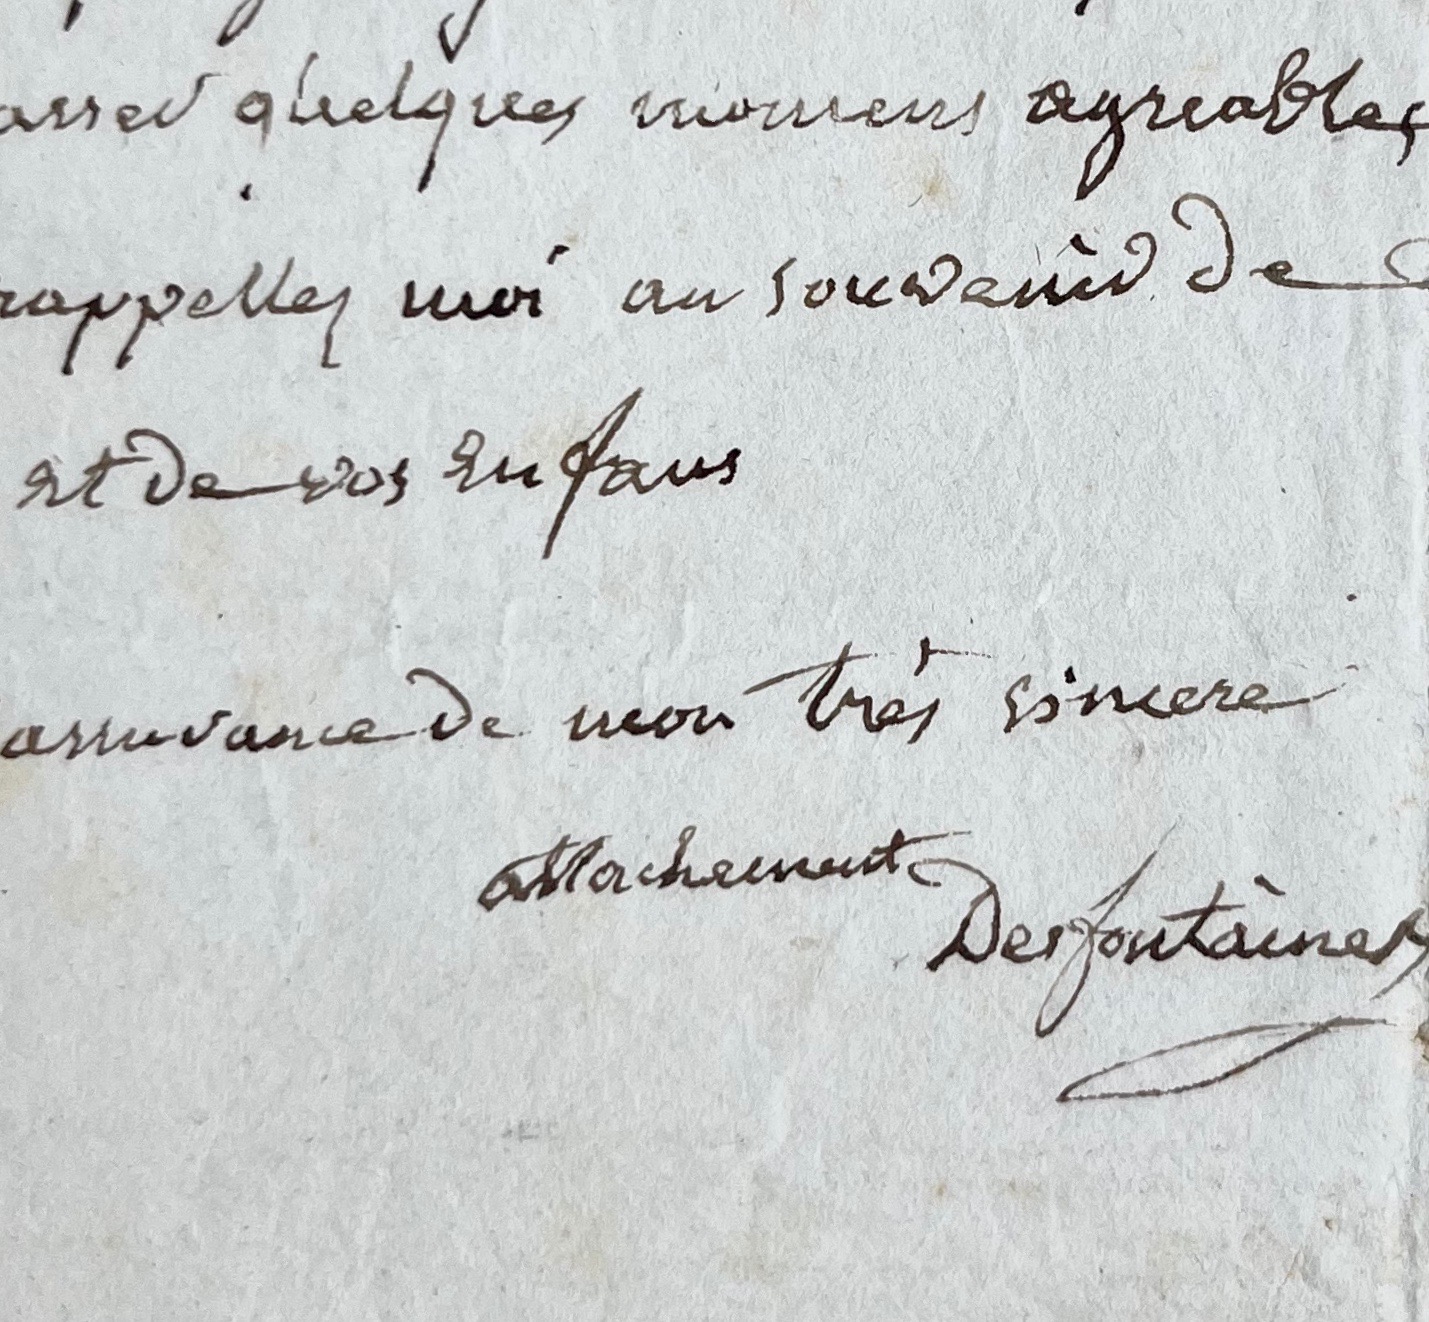 asser quelques momens agreables
rappelles moi au souvenir de
et de vos enfans
assurance de mon très sincere
attachement
Desfontaines